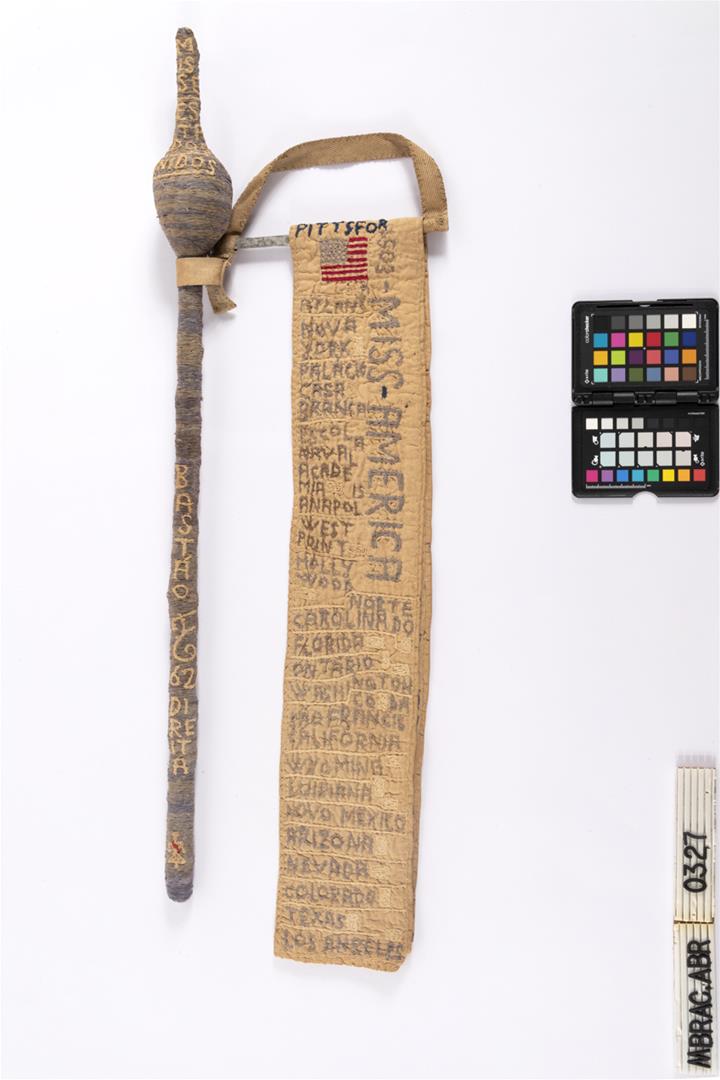 MISS ESTA
NIDOS
BASTAO
62
DIREITA
PITTSFOR
503-MISS-AMERICA
NOVA
YORK
PALACIO
CASA
BRANCA
NAVAL
ACADE
MIA IS
ANAPOL
WEST
POINT
HOLLY
WOOD
NORTE
CAROLINA DO
FLORIDA
ONTARIO
WASHINGTON
CALIFORNIA
WYOMING
LUIDIANA
NOVO MEXICO
ARIZONA
NEVADA
COLORADO
TEXAS
LOS ANGELES
0327
MBRAC.ABR